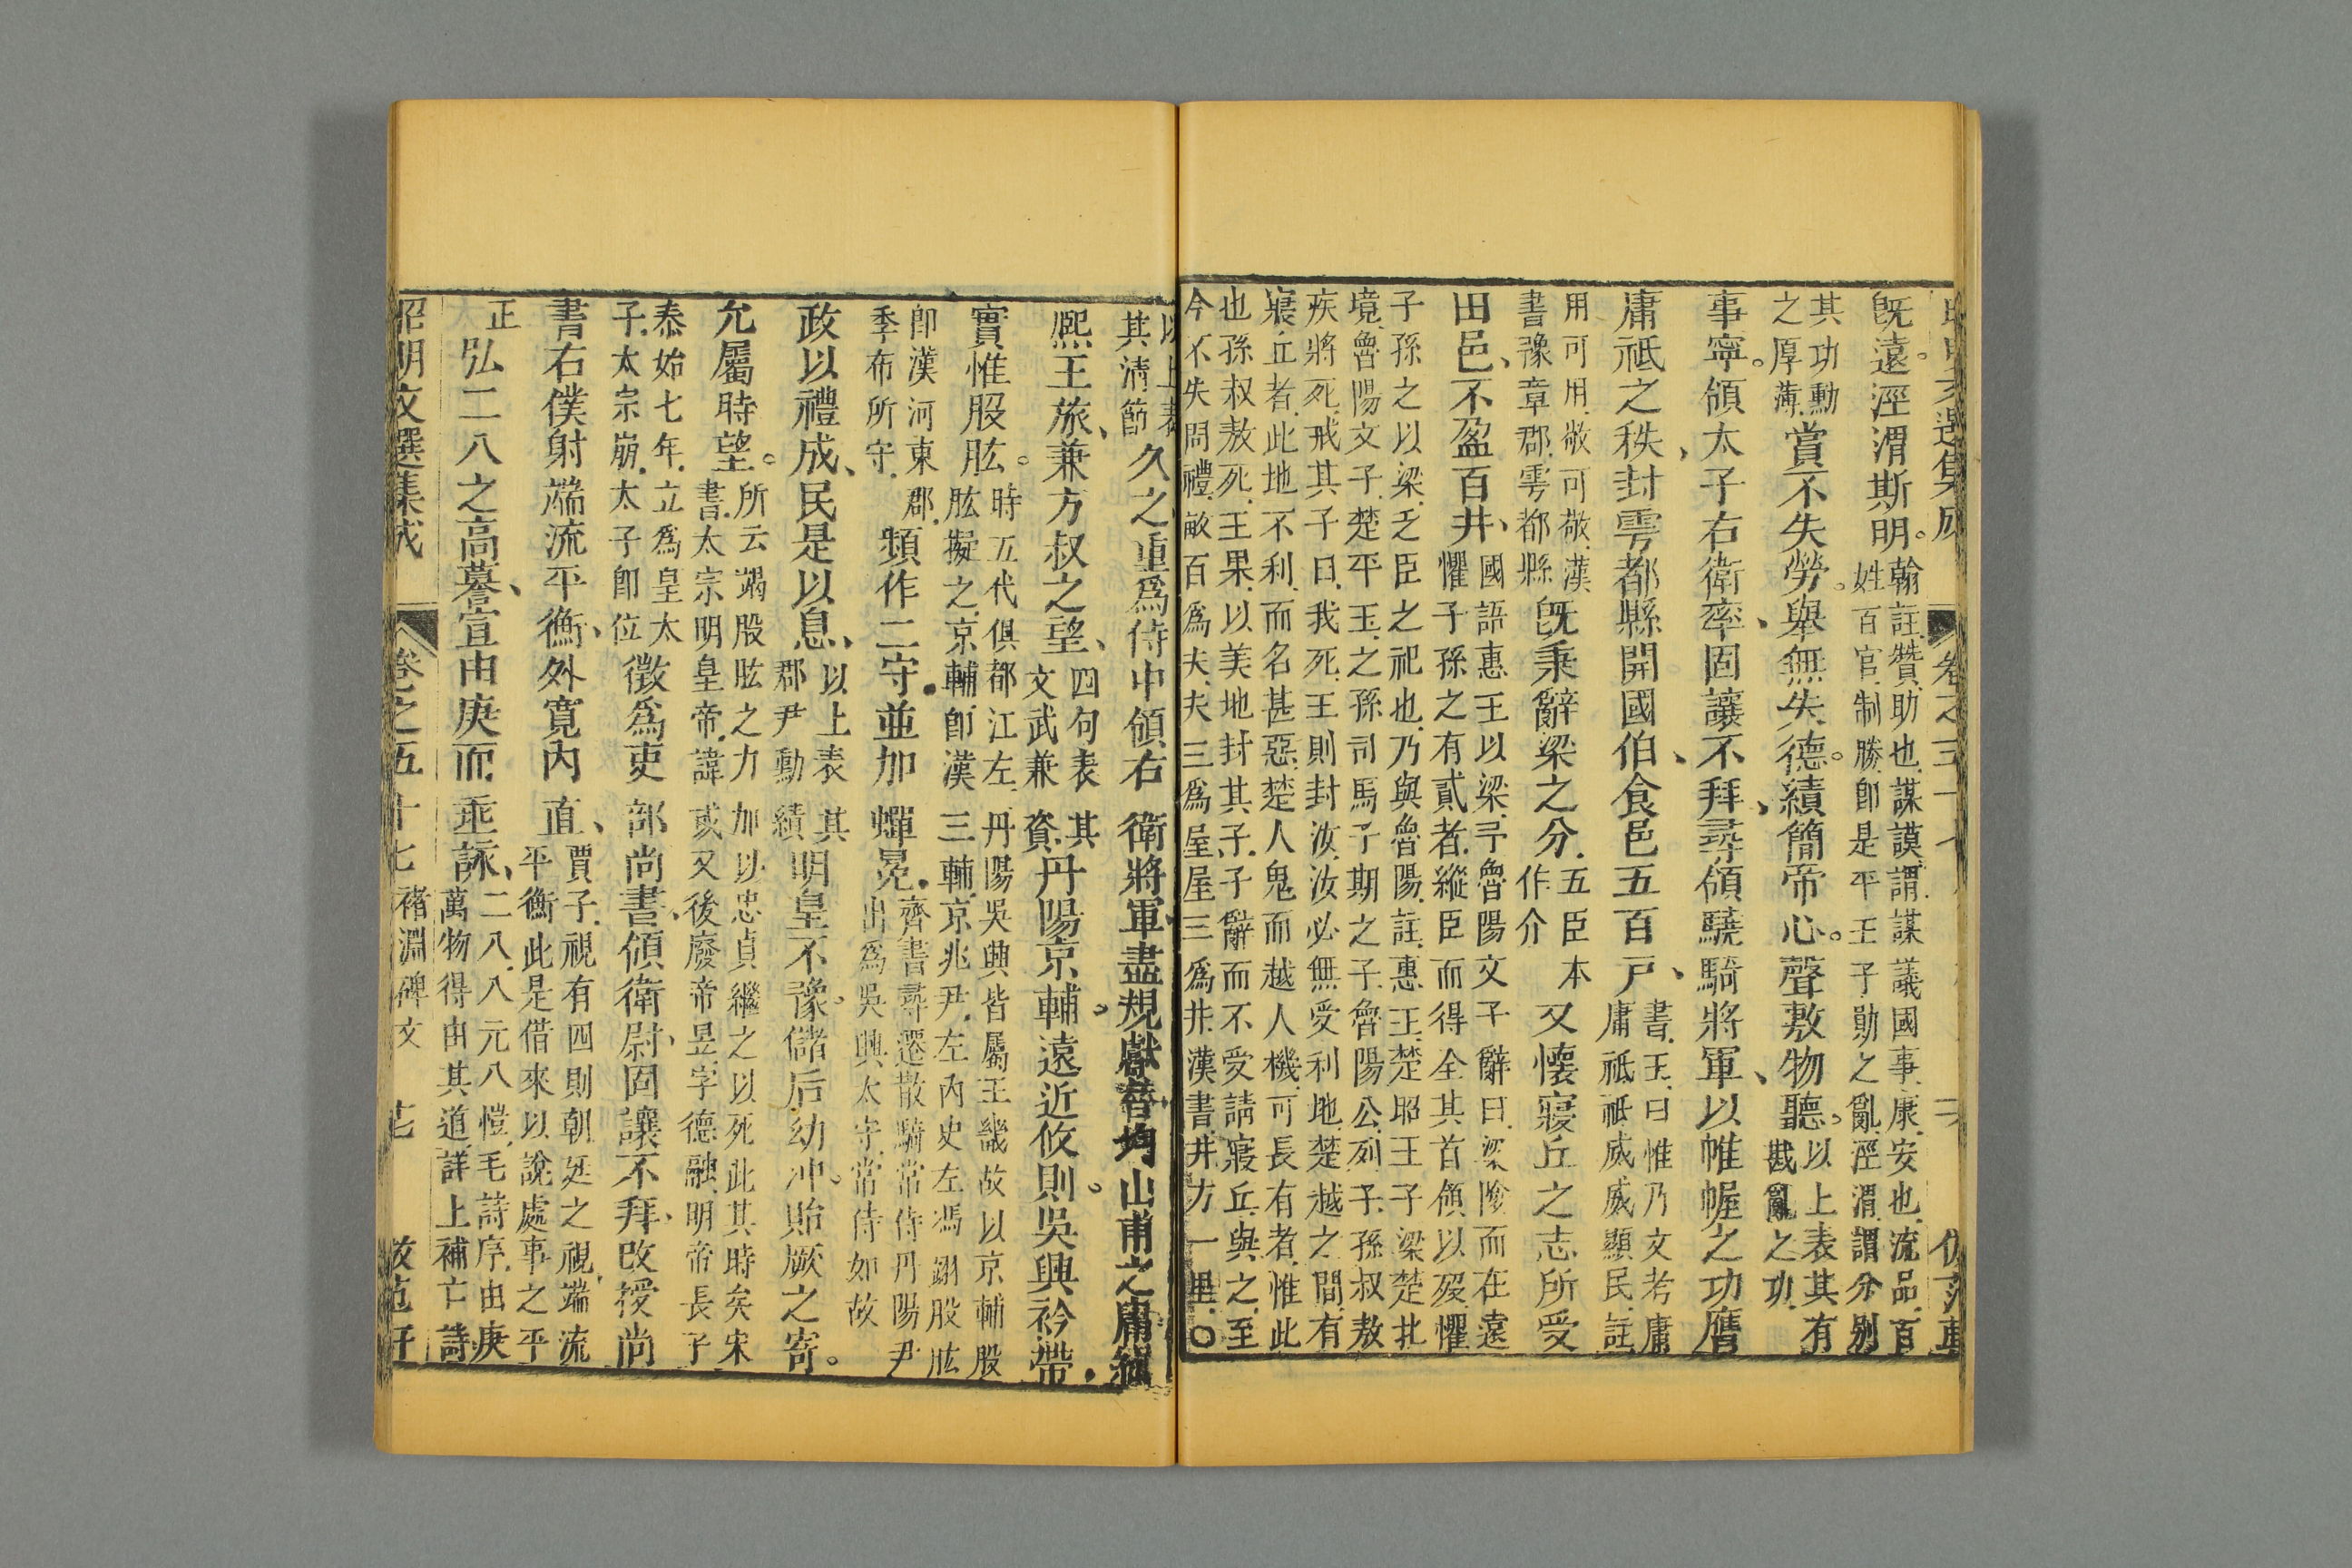 既遠。涇渭斯明。翰註、贊、助也、謀謨、謂謀議國事、康、安也、流品、百姓百官、制勝、卽是平王子勛之亂、涇渭、謂分别
其功勳之厚薄、賞不失勞。舉無失德。績簡帝心。聲敷物聽。以上表其有戡亂之功、
事寧。領太子右衛率、固讓不拜、尋領驍騎將軍、以帷幄之功膺
庸祗之秩、封雩都縣開國伯、食邑五百戸、書、王曰惟乃文考庸庸祗祗威威顯民、註
用可用、敬可敬、漢書豫章郡、雩都縣旣秉辭梁之分、五臣本作介又懷寢丘之志所受
田邑、不盈百井、國語惠王以梁、予魯陽文子辭曰、梁險而在遠懼子孫之有貳者、縱臣而得全其首領、以殁、懼
子孫之以梁、乏臣之祀也、乃與魯陽、註、惠王、楚昭王子梁楚北
境、魯陽文子、楚平王、之孫司馬子期之子、魯陽公、列子、孫叔敖
疾將死、戒其子曰、我死、王則封汝、汝必無受利地、楚越之間、有
寢丘者、此地不利、而名甚惡、楚人鬼而越人機、可長有者、惟此
也孫叔敖死、王果、以美地封其子、子辭而不受請寢丘、與之、至
今不失問禮、畝百爲夫、夫三爲屋屋三爲井、漢書、井方一里、○
以上表其清節久之重爲侍中領右衛將軍盡規獻替均山甫之庸緝
熙王旅、兼方叔之望、四句表其文武兼資丹陽京輔。遠近攸則。吳興衿帶、
實惟股肱。時五代俱都江左、丹陽吳興皆屬王畿故以京輔股肱擬之、京輔、卽漢三輔、京兆尹、左內史左馮翊股肱
卽漢河東郡、季布所守、頻作二守、並加蟬冕、齊書尋遷散騎常侍丹陽尹出爲吳興太守、常侍如故
政以禮成、民是以息、以上表其郡尹勳績明皇不豫。儲后幼冲。貽厥之寄。
允屬時望。所云竭股肱之力加以忠貞繼之以死此其時矣宋書、太宗明皇帝、諱彧又後廢帝昱、字德融、明帝長子
泰始七年、立爲皇太子、太宗崩、太子卽位徵爲吏部尚書、領衛尉、固讓不拜、改授尚
書右僕射端流平衡、外寬內直、賈子、視有四則朝廷之視、端流平衡此是借來以說處事之平
正弘二八之高謩、宣由庚而埀詠、二八、八元八愷、毛詩序、由庚萬物得由其道、詳上補亡詩
昭明文選集成 卷之五十七 禇淵碑文